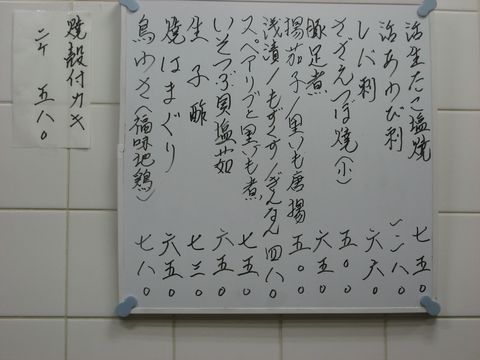 活生たこ塩焼 七五〇
活あわび刺 一二八〇
レバ刺 六八〇
さざえつぼ焼(小) 五〇〇
豚足煮 六五〇
揚茄子/里いも唐揚 五〇〇
浅漬/もずく酢/ぎんなん 四八〇
スペアリブと里いも煮 七五〇
いそつぶ貝塩茹 六五〇
生子酢 七三〇
焼はまぐり 六五〇
鳥わさ(福味地鶏) 七八〇
焼殻付カキ
二ケ 五八〇